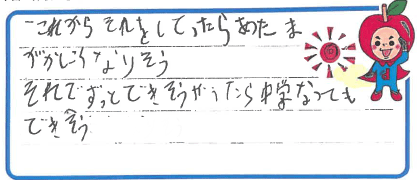 これからそれをしてったらあたま
がかしこくなりそう
それでずっとできそうだったら中学なっても
できそう